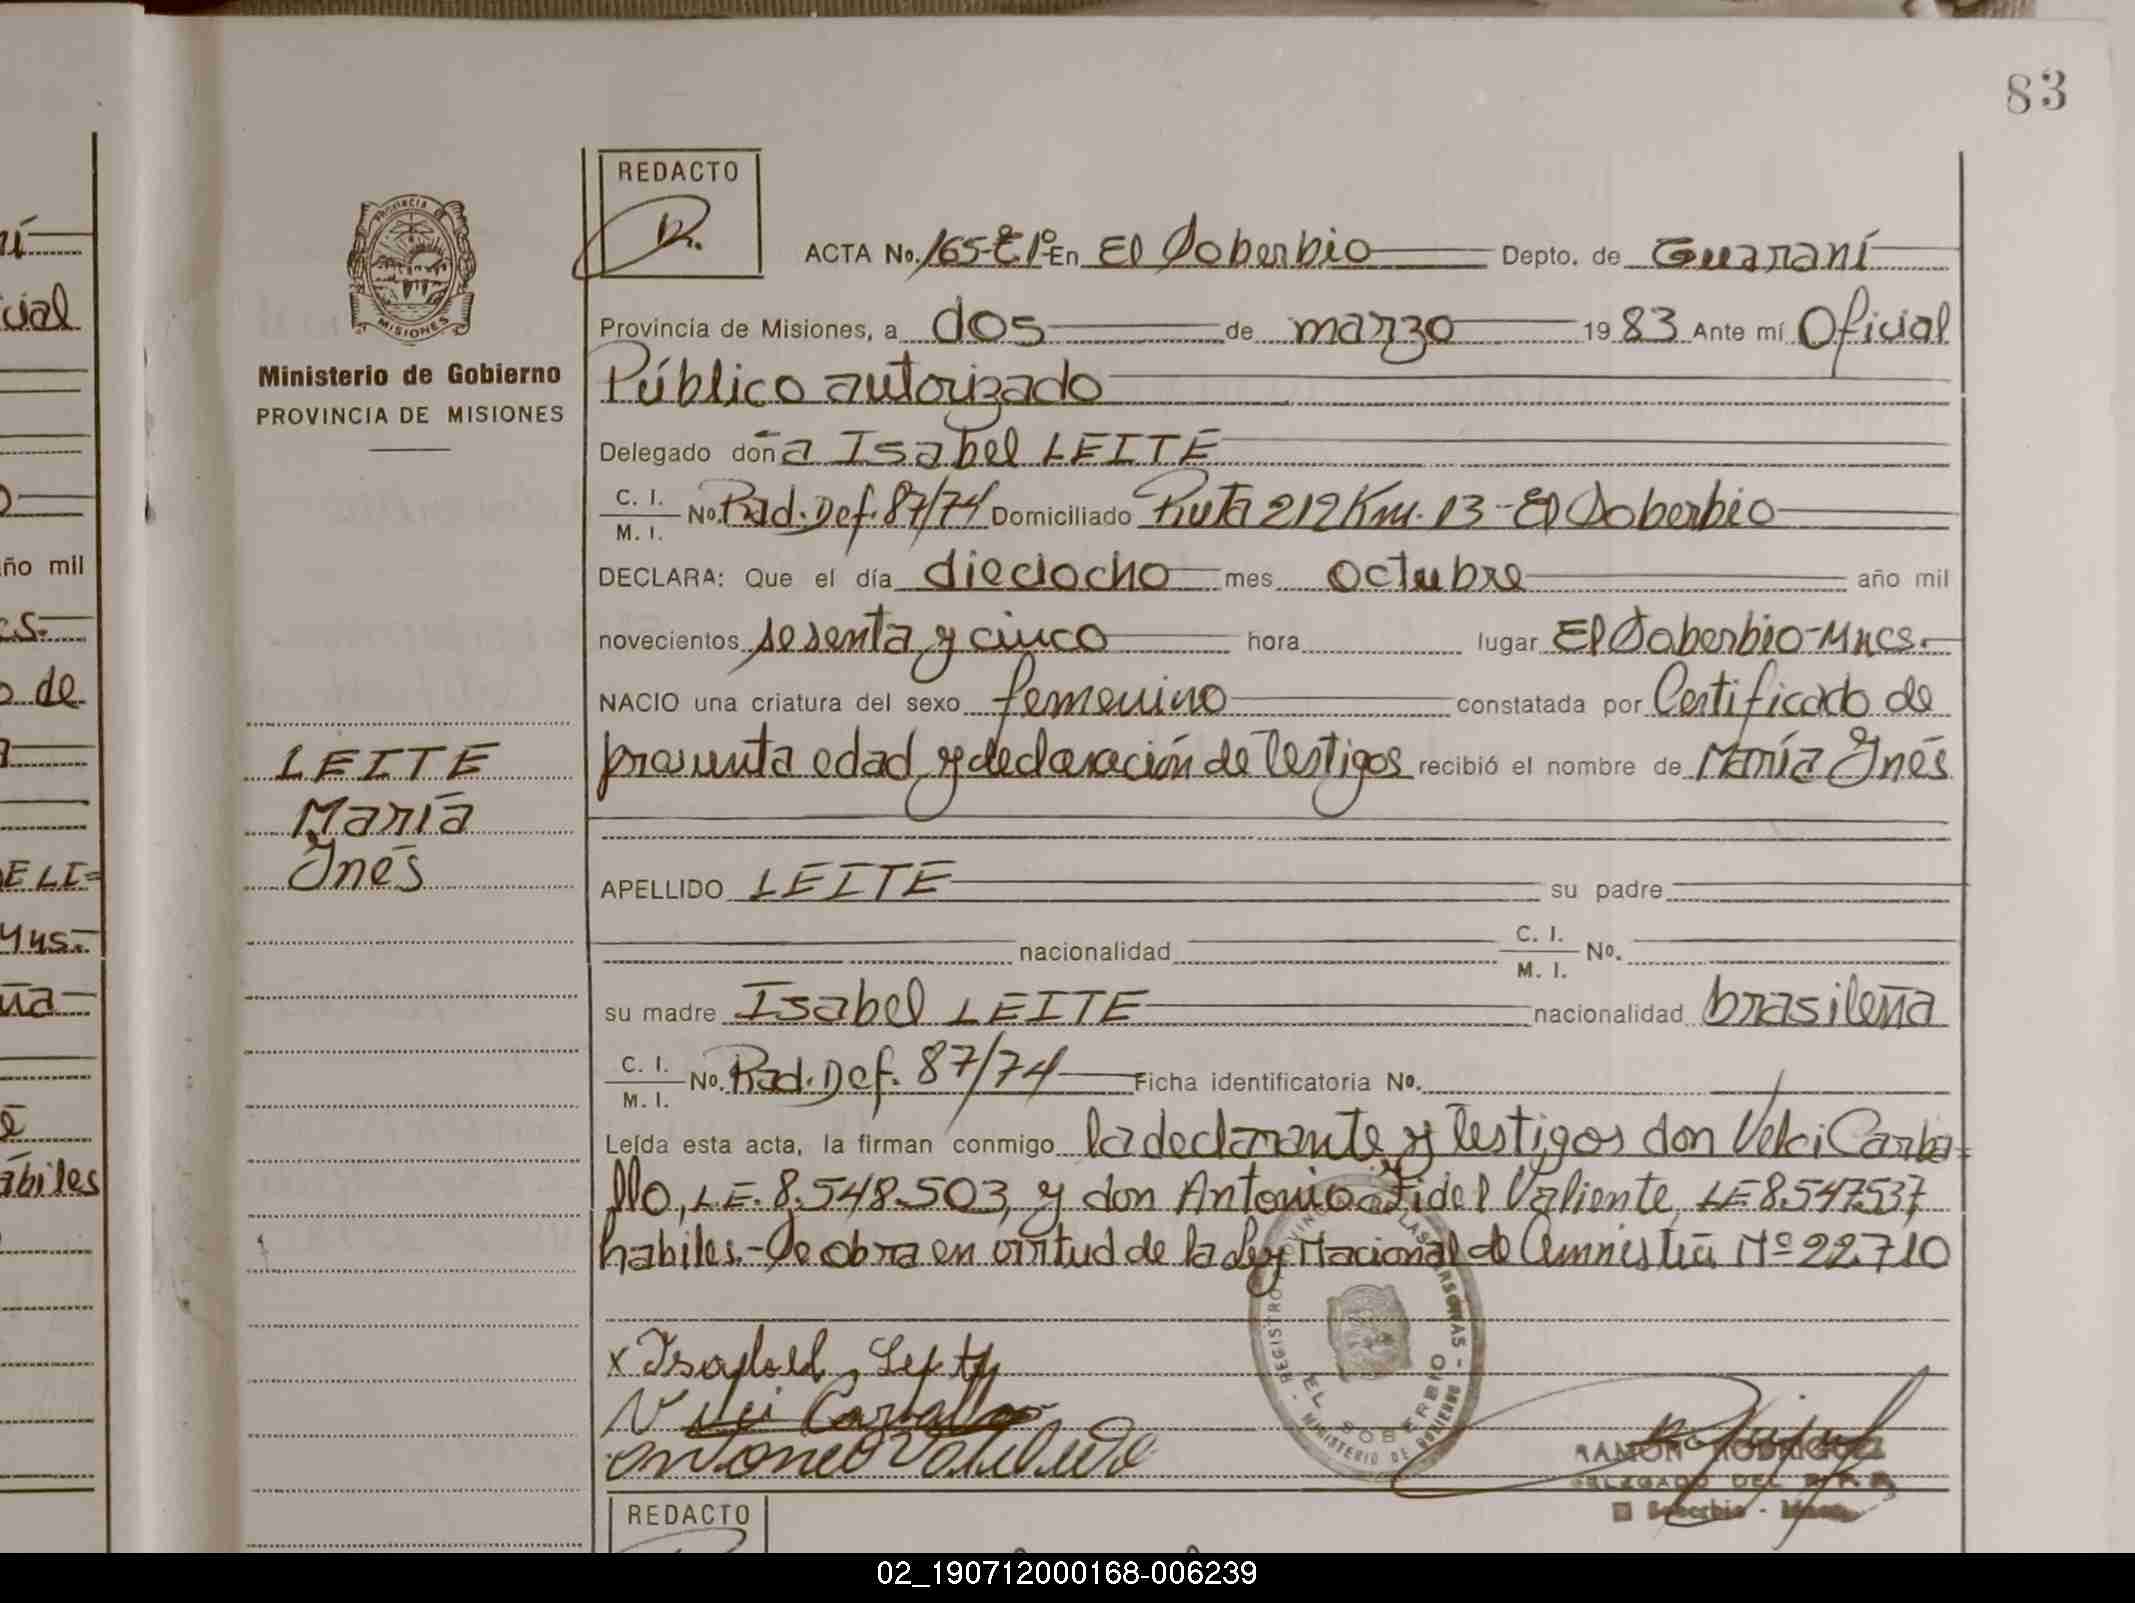 83
REDACTO
PROVINCIA DE
MISIONES
Ministerio de Gobierno
PROVINCIA DE MISIONES
ACTA No. 165-T 1º En El Soberbio Depto. de Guaraní
Provincia de Misiones, a dos de marzo 1983 Ante mí Oficial
Público autorizado
Delegado doña Isabel LEITE
C. I.
M. I. No. Rad. Def. 87/74 Domiciliado Ruta 212 Km. 13 - El Soberbio
DECLARA: Que el día dieciocho mes octubre año mil
novecientos sesenta y cinco hora lugar El Soberbio-Mnes.
NACIO una criatura del sexo femenino constatada por Certificado de
presunta edad y declaración de testigos recibió el nombre de María Ynés
LEITE
María
Ynés
APELLIDO LEITE su padre
nacionalidad C. I.
M. I. No.
su madre Isabel LEITE nacionalidad brasileña
C. I.
M. I. No. Rad. Def. 87/74 Ficha identificatoria No.
Leída esta acta, la firman conmigo la declarante y testigos don Velci Carba=
llo, L.E. 8.548.503, y don Antonio Fidel Valiente, LE 8.547.537,
habiles.- Se obra en virtud de la Ley Nacional de Amnistía Nº 22.710
REGISTRO PROVINCIAL DE LAS PERSONAS - MINISTERIO DE GOBIERNO -
EL SOBERBIO
x Isabel
Carvallo
RAMON RODRIGUEZ
DELEGADO DEL R.P.P.
El Soberbio - Mnes.
REDACTO
ní
cial
ño mil
es.
o de
ELI=
Mns.
ábiles
02_190712000168-006239